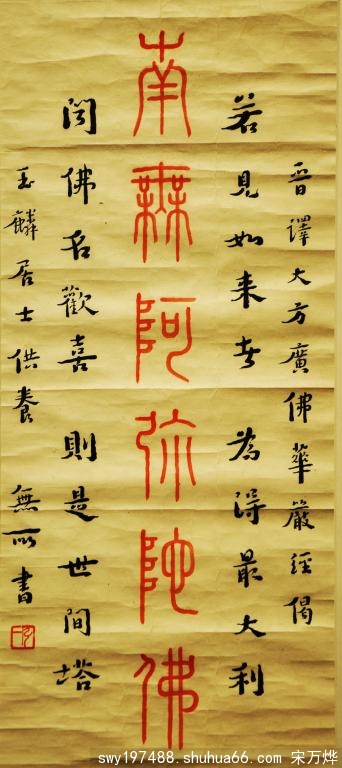 晉譯大方廣佛華嚴經偈
若見如来者為得最大利
南無阿弥陀佛
聞佛名歡喜則是世間塔
玉麟居士供養 無所書
swy197488.shuhua66.com 宋万烨